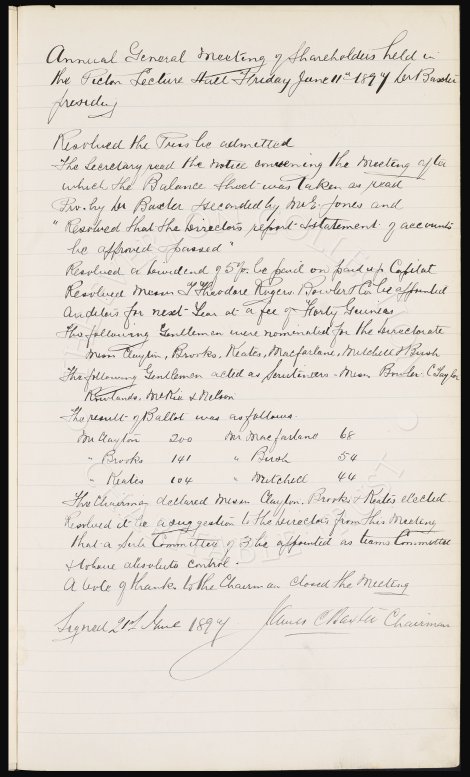 Annual General Meeting of Shareholders held in
the Picton Lecture Hall Friday June 11th 1897 Dr Baxter
presiding
Resolved the Press be admitted
The Secretary read the notice convening the Meeting after
which the Balance Sheet was taken as read
Pro. by Dr Baxter & seconded by Mr E. Jones and
"Resolved that the Directors report & statement of accounts
be approved & passed"
Resolved a Dividend of 5% be paid on paid up Capital
Resolved Messrs T Theodore Rogers Bowler & Co be appointed
Auditors for next Year at a fee of Forty Guineas
The following Gentlemen were nominated for the Directorate
Messrs Clayton, Brooks, Keates, Macfarlane, Mitchell & Bush
The following Gentlemen acted as Scrutineers - Messrs Bowler C Taylor
Rowlands, McKie & Nelson
The result of Ballot was as follows
Mr Clayton 200 Mr Macfarlane 68
" Brooks 141 " Bush 54
" Keates 104 " Mitchell 44
The Chairman declared Messrs Clayton, Brooks & Keates elected
Resolved it be a suggestion to the Directors from this Meeting
that a Sub Committee of 3 be appointed as teams Committee
& to have absolute control.
A vote of thanks to the Chairman closed the Meeting
Signed 21st June 1897 James C Baxter Chairman